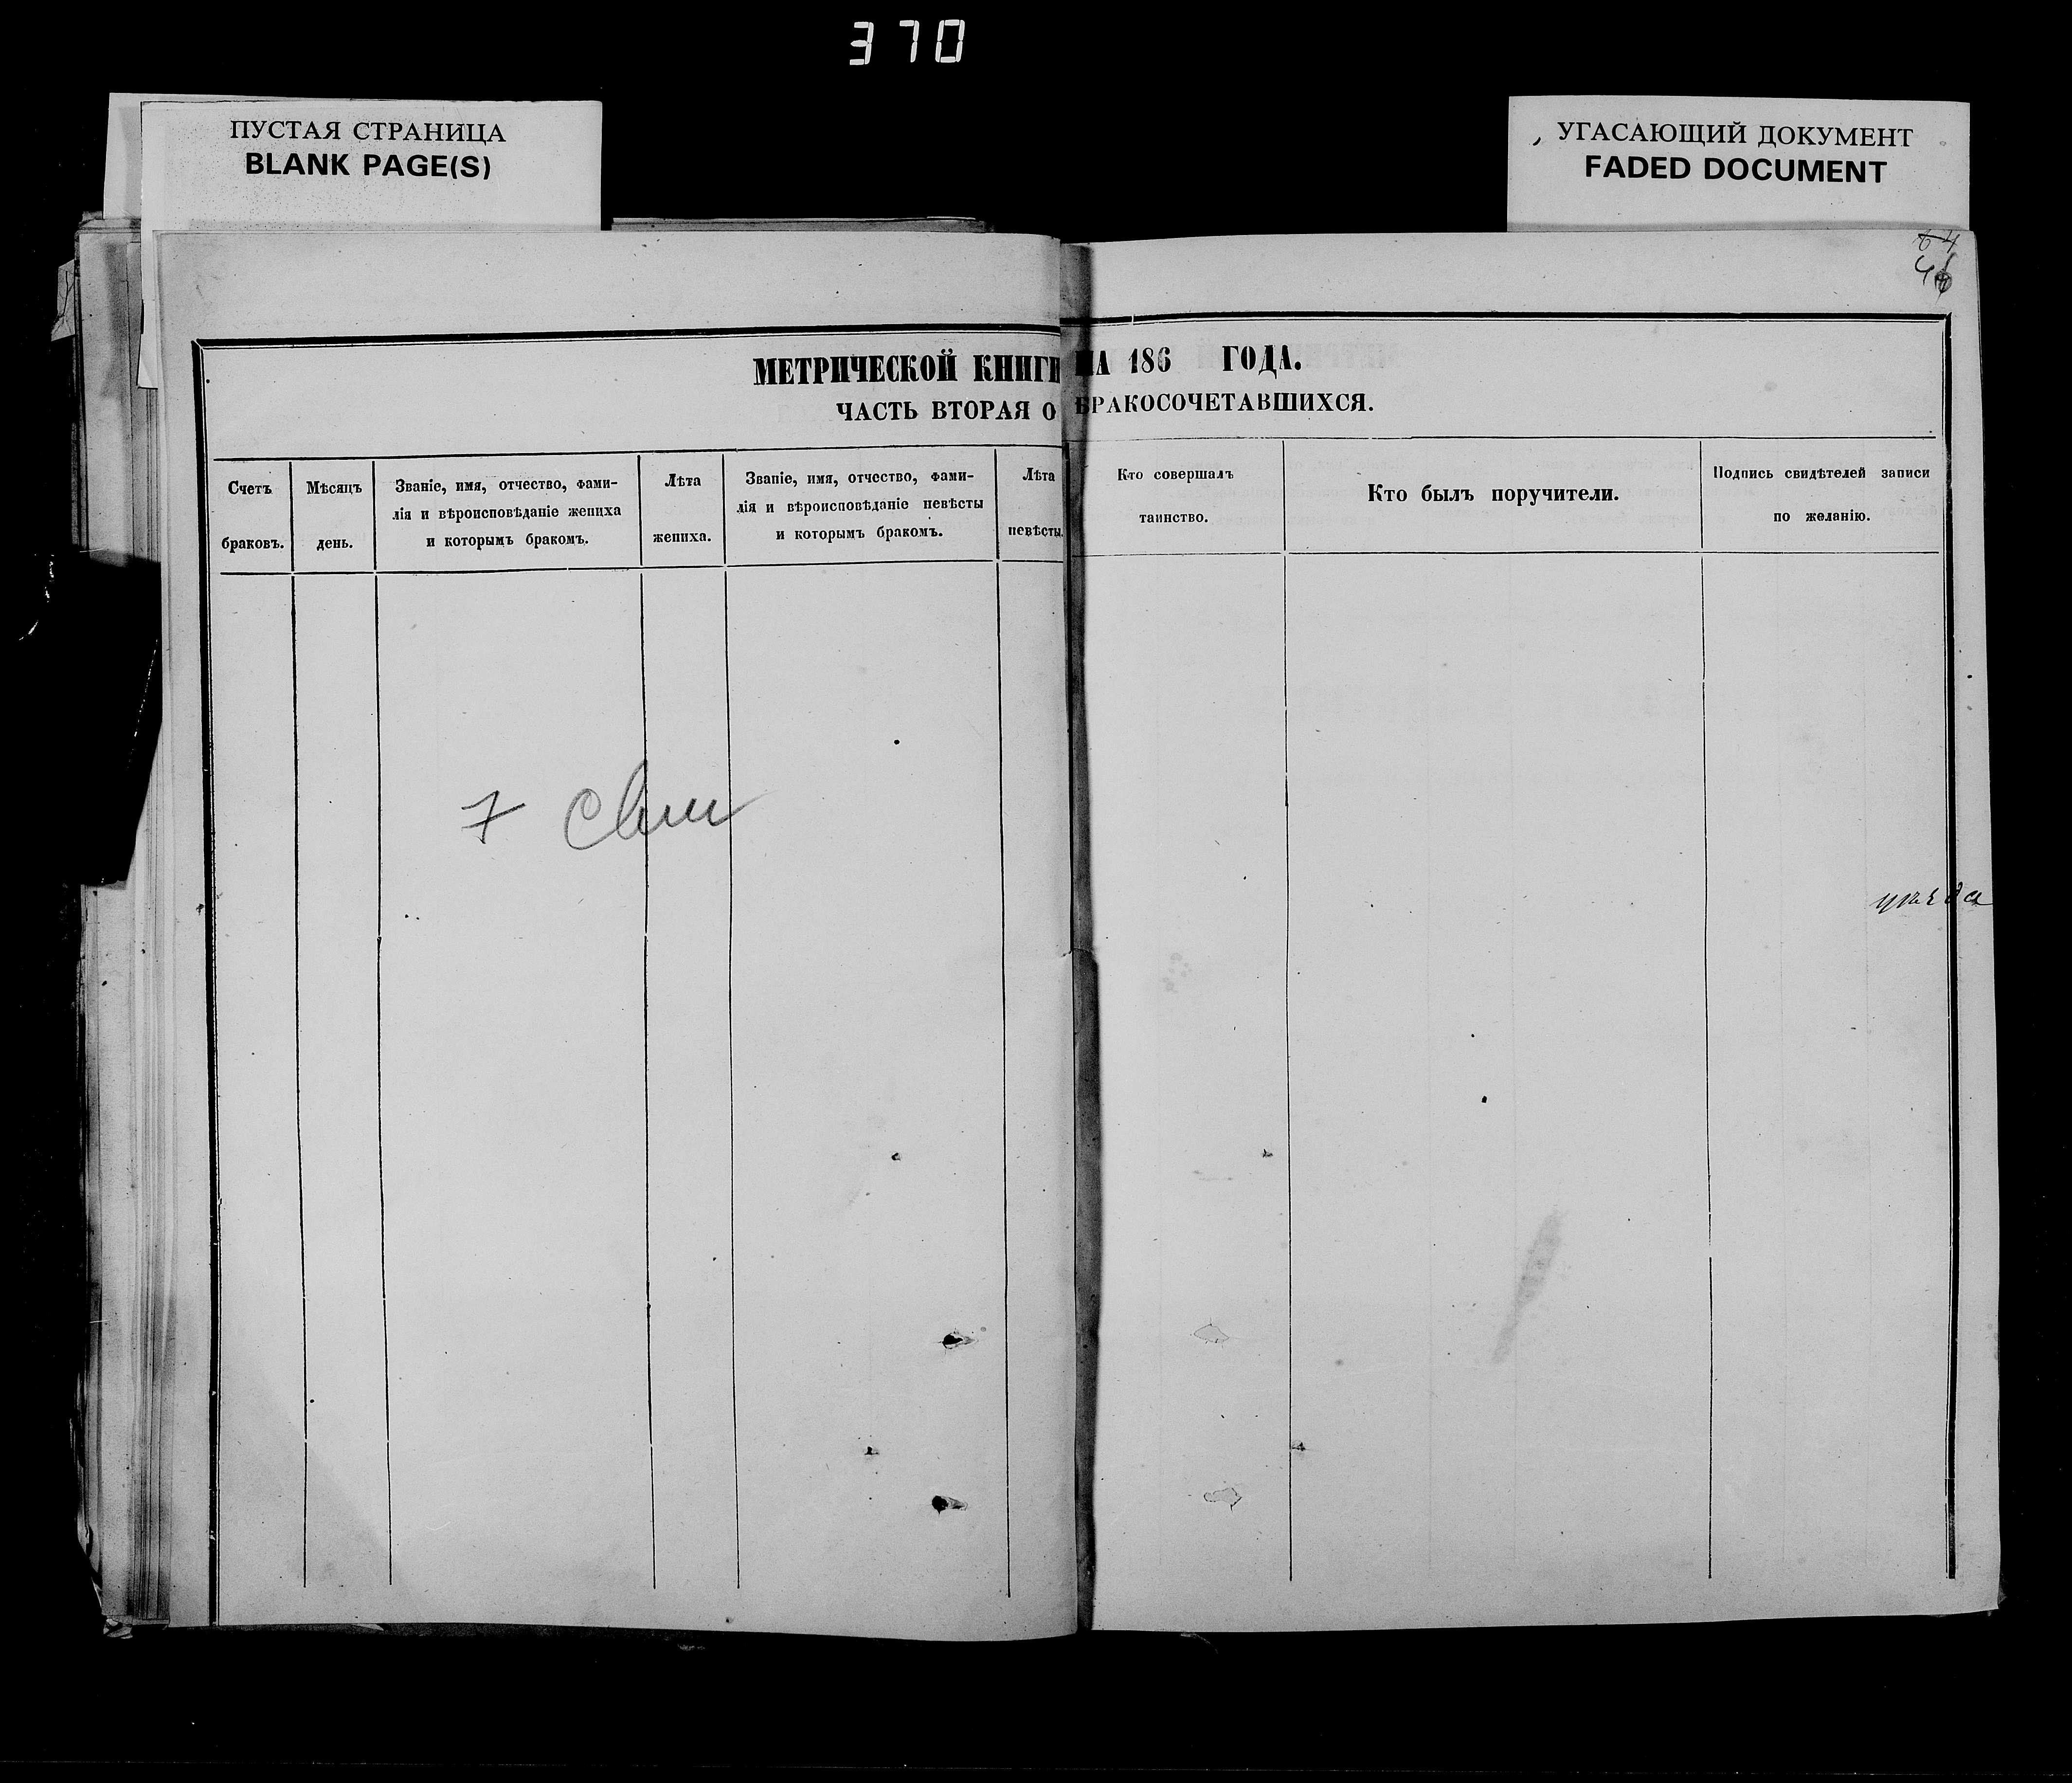 370
ПУСТАЯ СТРАНИЦА
BLANK PAGE(S)
УГАСАЮЩИЙ ДОКУМЕНТ
FADED DOCUMENT
64
46
МЕТРИЧЕСКОЙ КНИГИ НА 186 ГОДА.
ЧАСТЬ ВТОРАЯ О БРАКОСОЧЕТАВШИХСЯ.
Счетъ
браковъ.
Мѣсяцъ
день.
Званіе, имя, отчество, фами-
лія и вѣроисповѣданіе жениха
и которымъ бракомъ.
Лѣта
жениха.
Званіе, имя, отчество, фами-
лія и вѣроисповѣданіе невѣсты
и которымъ бракомъ.
Лѣта
невѣсты.
Кто совершалъ
таинство.
Кто былъ поручители.
Подпись свидѣтелей записи
по желанію.
7
уѣзда